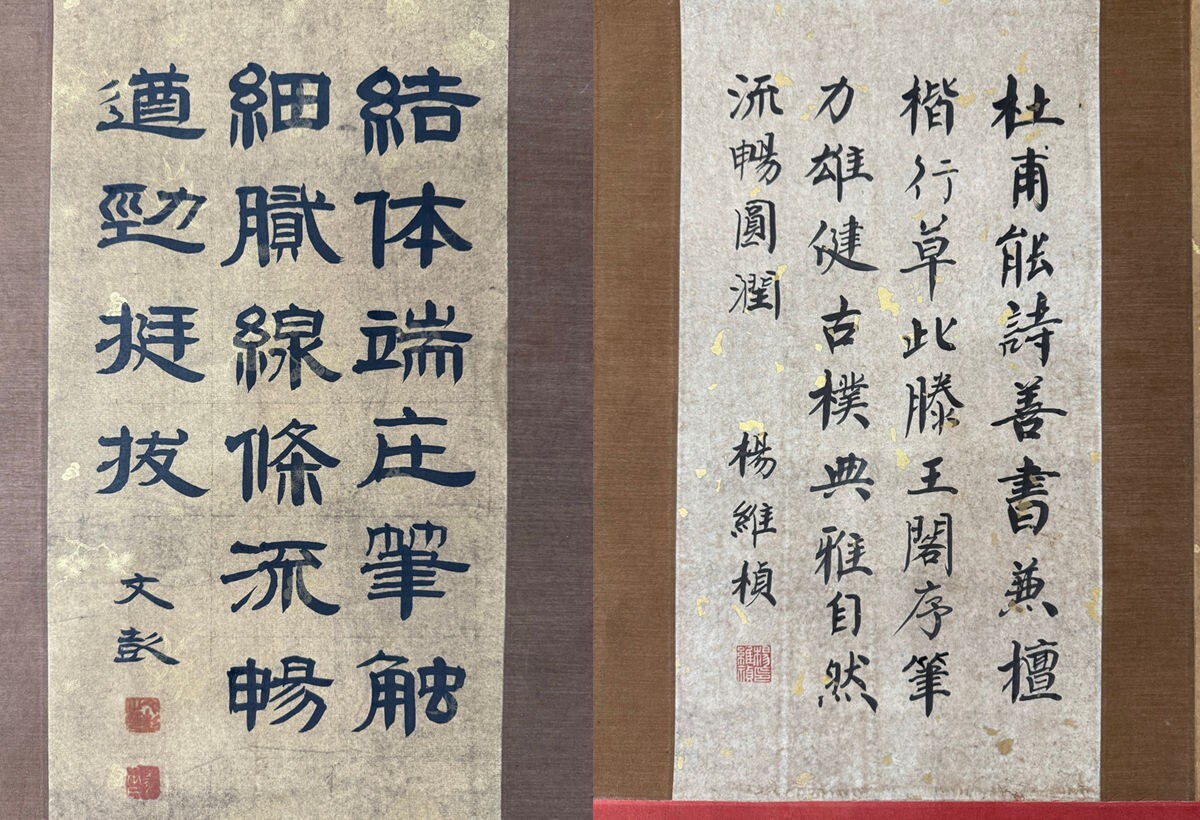 結体端庄筆触
細膩線條流暢
遒勁挺拔
文彭
杜甫能詩善書兼檀
楷行草此滕王閣序筆
力雄健古樸典雅自然
流暢圓潤 楊維楨